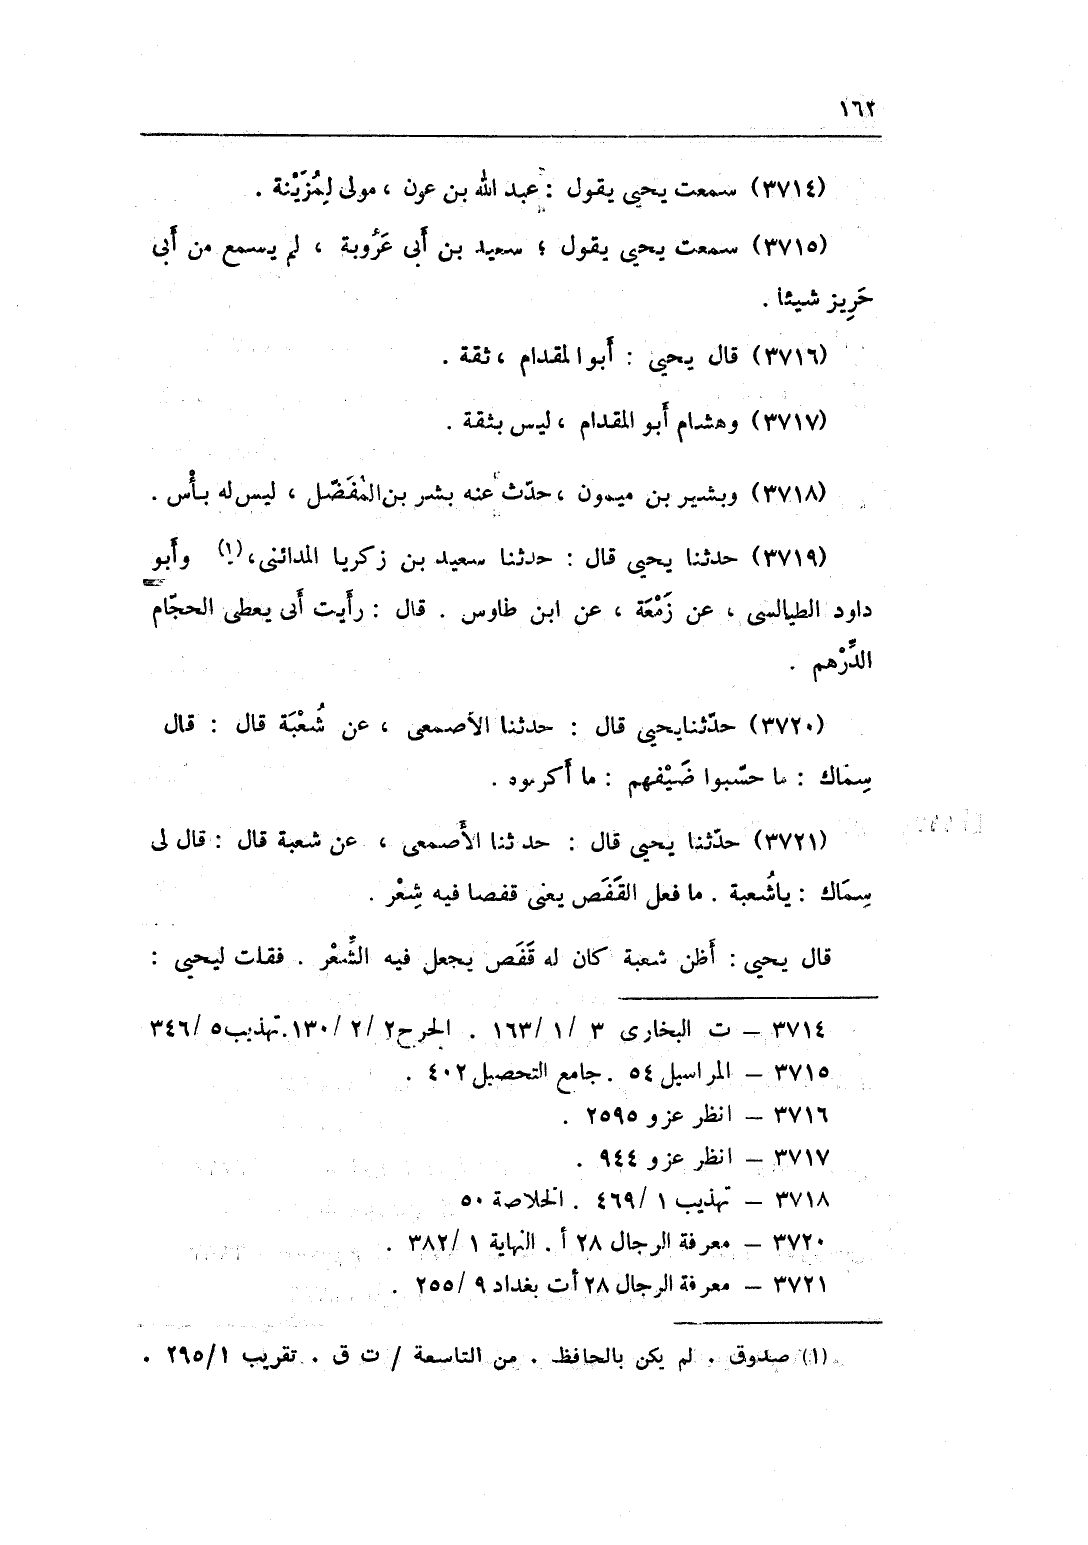 ١٦٢
(٣٧١٤) سمعت يحيى يقول : عبد الله بن عون ، مولى لِمُزَيْنة .
(٣٧١٥) سمعت يحيى يقول ؛ سعيد بن أَبى عَرُوبة ، لم يسمع من أَبى
حَرِيز شيئا .
(٣٧١٦) قال يحيى : أَبو المقدام ، ثقة .
(٣٧١٧) وهشام أَبو المقدام ، ليس بثقة .
(٣٧١٨) وبشير بن ميمون ، حدّث عنه بشر بن المُفَضّل ، ليس له بأْس .
(٣٧١٩) حدثنا يحيى قال : حدثنا سعيد بن زكريا المدائنى،(١) وأَبو
داود الطيالسى ، عن زَمْعَة ، عن ابن طاوس . قال : رأَيت أَبى يعطى الحجّام
الدِّرْهم .
(٣٧٢٠) حدّثنا يحيى قال : حدثنا الأصمعى ، عن شُعْبَة قال : قال
سِمَاك : ما حسّبوا ضَيْفهم : ما أَكرموه .
(٣٧٢١) حدّثنا يحيى قال : حدثنا الأَصمعى ، عن شعبة قال : قال لى
سِمَاك : ياشُعبة . ما فعل القَفَص يعنى قفصا فيه شِعْر .
قال يحيى : أَظن شعبة كان له قَفَص يجعل فيه الشِّعْر . فقلت ليحيى :
٣٧١٤ – ت البخارى ٣ /١ /١٦٣ . الجرح ٢/ ٢ /١٣٠.تهذيب ٥ /٣٤٦
٣٧١٥ – المراسيل ٥٤ . جامع التحصيل ٤٠٢ .
٣٧١٦ – انظر عزو ٢٥٩٥ .
٣٧١٧ – انظر عزو ٩٤٤ .
٣٧١٨ – تهذيب ١ /٤٦٩ . الخلاصة ٥٠
٣٧٢٠ – معرفة الرجال ٢٨ أ . النهاية ١ /٣٨٢ .
٣٧٢١ – معرفة الرجال ٢٨ أت بغداد ٩ /٢٥٥ .
(١) صدوق . لم يكن بالحافظ . من التاسعة / ت ق . تقريب ٢٩٥/١ .